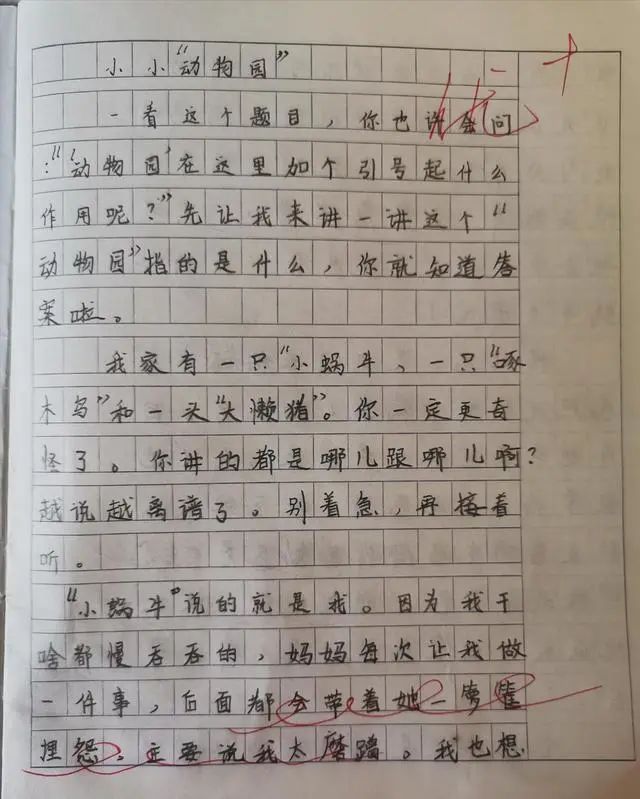 小小“动物园”
一看这个题目，你也许会问
：“‘动物园’在这里加个引号起什么
作用呢？”先让我来讲一讲这个“
动物园”指的是什么，你就知道答
案啦。
我家有一只“小蜗牛、一只“啄
木鸟”和一头“大懒猪”。你一定更奇
怪了。你讲的都是哪儿跟哪儿啊？
越说越离谱了。别着急，再接着
听。
“小蜗牛”说的就是我。因为我干
啥都慢吞吞的，妈妈每次让我做
一件事，后面都会带着她一箩筐
埋怨，定要说我太磨蹭。我也想